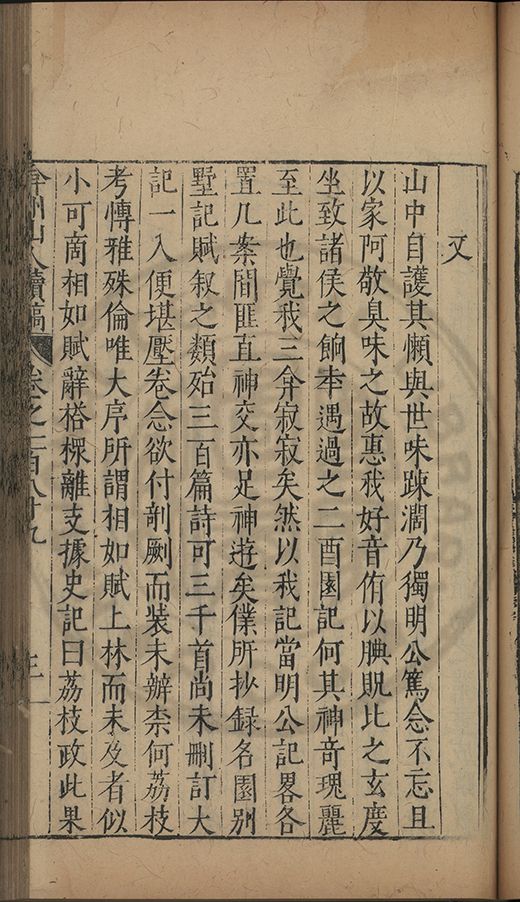 又
山中自護其懶與世味踈濶乃獨明公篤念不忘且
以家阿敬臭味之故惠我好音侑以腆貺比之玄度
坐致諸侯之餉夲遇過之二酉園記何其神竒瑰麗
至此也覺我三弇寂寂矣然以我記當明公記畧各
置几案間匪直神交亦足神遊矣僕所抄録名園别
墅記賦叙之類殆三百篇詩可三千首尚未刪訂大
記一入便堪壓卷念欲付剞劂而装未辦柰何荔枝
考愽雅殊倫唯大序所謂相如賦上林而未及者似
小可啇相如賦辭榙㯚離支據史記曰荔枝政此果
弇州山人續稿 卷之一百八十九